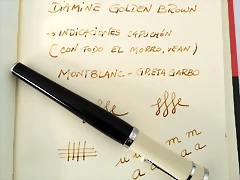 DIAMINE GOLDEN BROWN
→ INDICACIONES CAPUCHÓN
(CON TODO EL MORRO, VEAN)
MONTBLANC - GRETA GARBO
fffe fffe
m m
u u a a
a a a